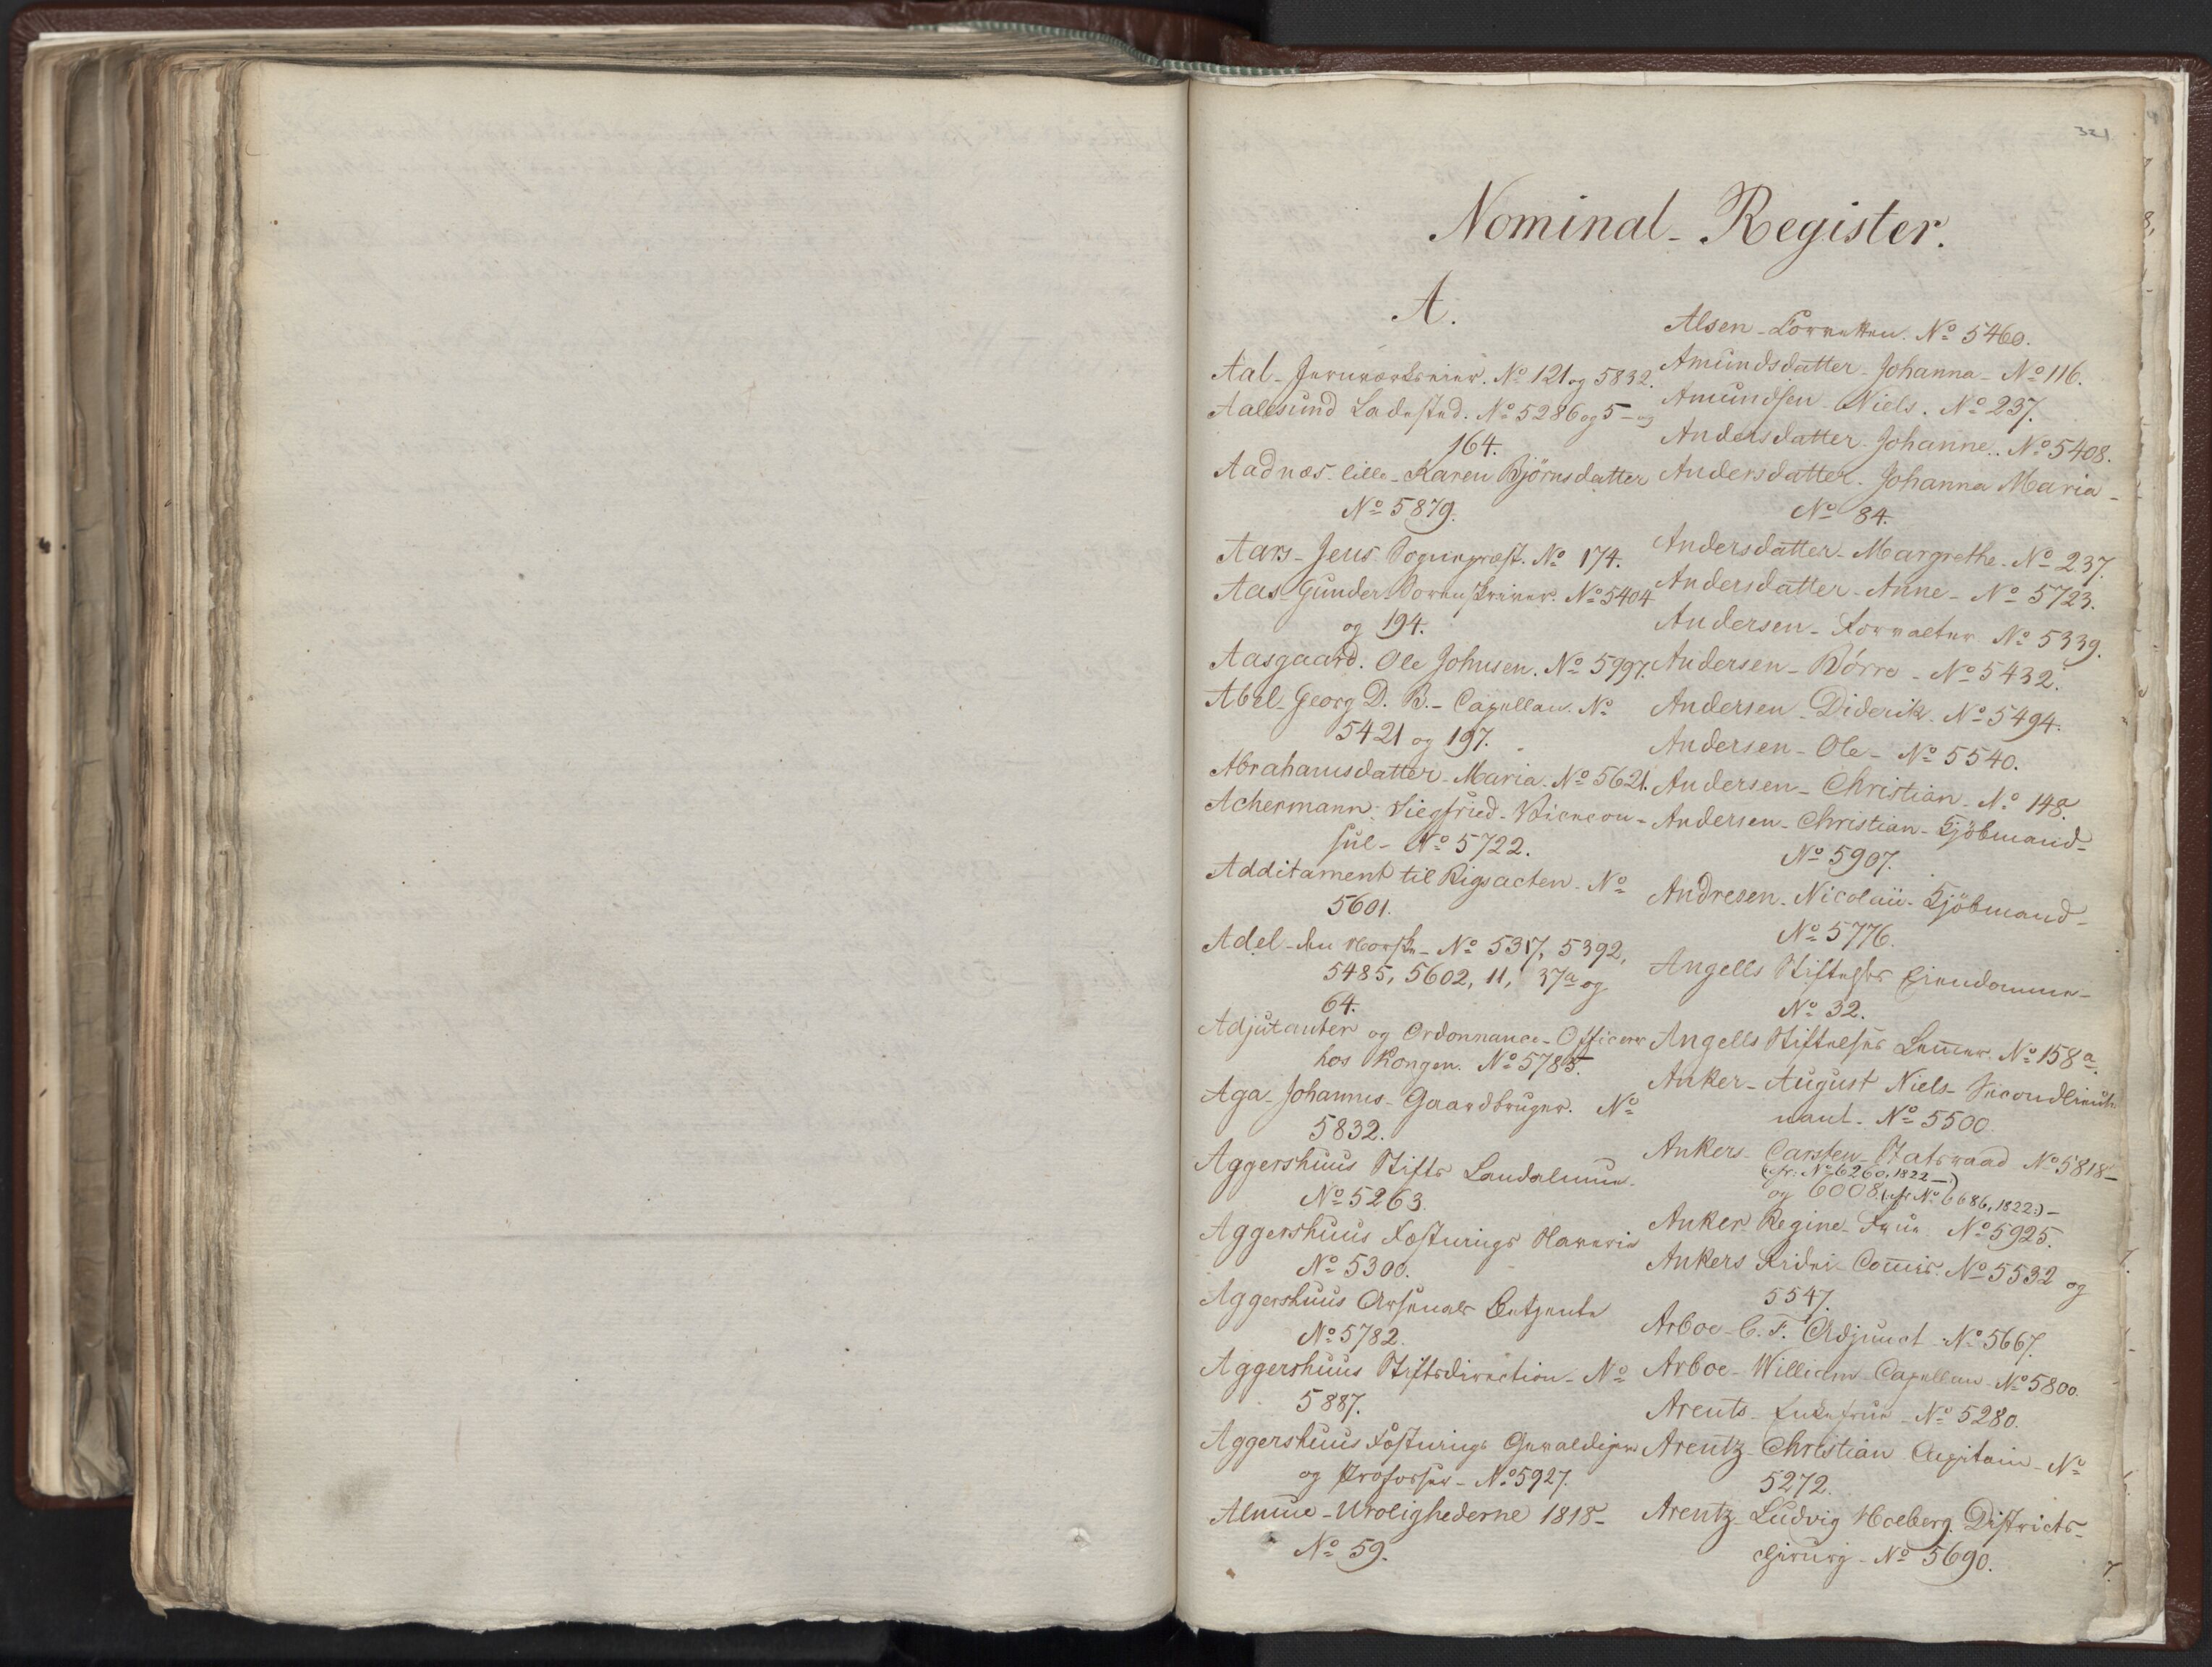 321
Nominal-Register.
A.
Aal-Jernværkseier. No 121 og 5832.
Aalesund Ladested. No 5286 og 5- og
164.
Aadnæs-lille-Karen Björnsdatter
No 5879.
Aars-Jens-Sognepræst. No 174.
Aas-Gunder-Sorenskriver. No 5404
og 194.
Aasgaard. Ole Johnsen. No 5997.
Abel-Georg D. B.- Capellan. No
5421 og 197.
Abrahamsdatter-Maria. No 5621.
Achermann: Siegfried-Vicecon-
sul- No 5722.
Additament til Rigsacten. No
5601.
Adel-den norske- No 5317, 5392,
5485, 5602, 11, 37a og
64.
Adjutanter og Ordonnance-Officerer
hos Kongen. No 5785.
Aga-Johannes-Gaardbruger. No
5832.
Aggershuus Stifts Landalmue.
No 5263.
Aggershuus Fæstnings Slaverie
No 5300.
Aggershuus Arsenals Betjente
No 5782.
Aggershuus Stiftsdirection- No
5887.
Aggershuus Fæstnings Gevaldiger
og Profosser- No 5927.
Almue-Urolighederne 1818-
No 59.
Alsen-Corvetten. No 5460.
Amundsdatter-Johanna- No 116.
Amundsen-Niels. No 237.
Andersdatter-Johanne.. No 5408.
Andersdatter. Johanna Maria-
No 84.
Andersdatter-Margrethe- No 237.
Andersdatter-Anne- No 5723.
Andersen-Forvalter No 5339.
Andersen-Börre- No 5432.
Andersen-Diderik. No 5494.
Andersen-Ole- No 5540.
Andersen-Christian. No 148.a
Andersen-Christian-Kjöbmand-
No 5907.
Andresen-Nicolaii-Kjöbmand-
No 5776.
Angells Stiftelses Eiendomme-
No 32.
Angells Stiftelses Lemmer. No 158a.
Anker-August Niels-Secondlieute
nant- No 5500.
Ankers-Carsten-Statsraad No 5818-
(cfr. No 6260, 1822-)
og 6008. (cfr No 6686, 1822.)-
Anker-Regine-Frue No 5925.
Ankers Fidei-Comis. No 5532 og
5547.
Arboe-C. F. Adjunct- No 5667.
Arboe-William-Capellan- No 5800.
Arents-Enkefrue- No 5280.
Arentz-Christian Capitain- No
5272.
Arentz-Ludvig Holberg. Districts-
chirurg- No 5690.